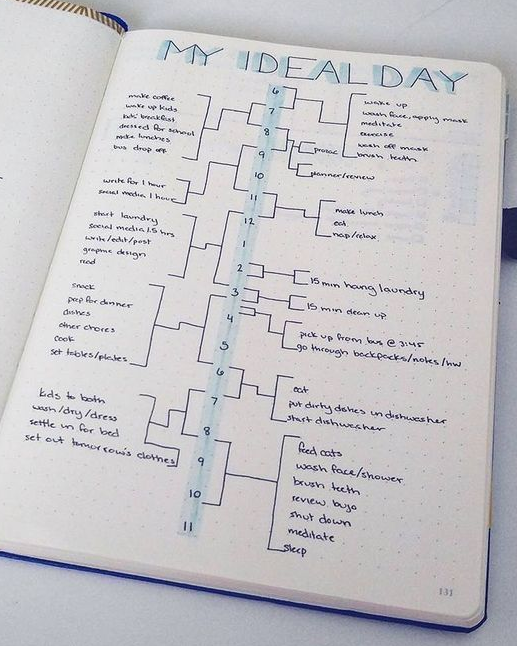 MY IDEAL DAY
make coffee
wake up kids
kids' breakfast
dressed for school
make lunches
bus drop off
write for 1 hour
social media 1 hour
start laundry
social media 1.5 hrs
write/edit/post
graphic design
read
snack
prep for dinner
dishes
other chores
cook
set tables/plates
kids to bath
wash/dry/dress
settle in for bed
set out tomorrow's clothes
6
7
8
9
10
11
12
1
2
3
4
5
6
7
8
9
10
11
wake up
wash face, apply mask
meditate
exercise
wash off mask
brush teeth
prosac
planner/review
make lunch
eat
nap/relax
15 min hang laundry
15 min clean up
pick up from bus @ 3:45
go through backpacks/notes/hw
eat
put dirty dishes in dishwasher
start dishwasher
feed cats
wash face/shower
brush teeth
review bujo
shut down
meditate
sleep
131